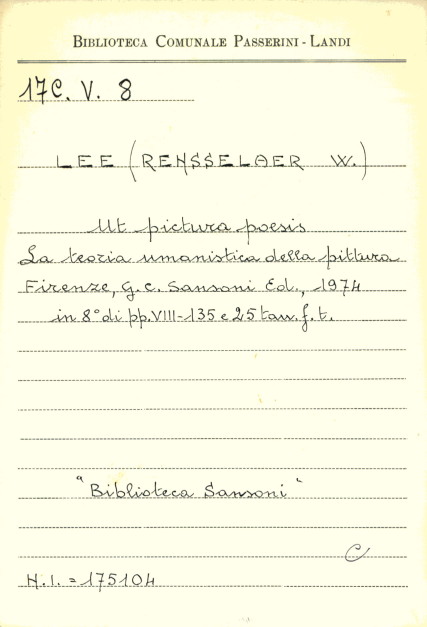 BIBLIOTECA COMUNALE PASSERINI - LANDI
17C. V. 8
LEE (RENSSELAER W.)
Ut pictura poesis
La teoria umanistica della pittura
Firenze, G. C. Sansoni Ed., 1974
in 8° di pp. VIII-135 e 25 tav. f. t.
"Biblioteca Sansoni"
C
N.I. = 175104